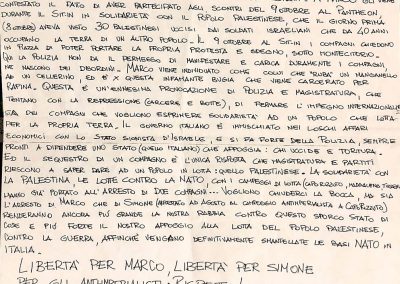 CONTESTATO IL FATO DI AVER PARTECIPATO AGLI SCONTRI DEL 9 OTTOBRE AL PANTHEON
DURANTE IL SIT.IN IN SOLIDARIETÀ CON IL POPOLO PALESTINESE, CHE IL GIORNO PRIMA
(8 OTTOBRE) AVEVA VISTO 30 PALESTINESI UCCISI DAI SOLDATI ISRAELIANI CHE DA 40 ANNI
OCCUPANO LA TERRA DI UN ALTRO POPOLO. IL 9 OTTOBRE AL SIT.IN I COMPAGNI CHIEDONO
IN PIAZZA DI POTER PORTARE LA PROPRIA PROTESTA E DISSENSO SOTTO MONTECITORIO.
LA POLIZIA NON DÀ IL PERMESSO DI MANIFESTARE E CARICA DURAMENTE I COMPAGNI,
NE NASCONO DEI DISORDINI. MARCO VIENE INDIVIDUATO COME COLUI CHE "RUBA" UN MANGANELLO
AD UN CELLERINO, ED È X QUESTA INFAMANTE BUGIA CHE VIENE CARCERATO PER
RAPINA. QUESTA È UN'ENNESIMA PROVOCAZIONE DI POLIZIA E MAGISTRATURA, CHE
TENTANO CON LA REPRESSIONE (CARCERE E BOTTE), DI FERMARE L'IMPEGNO INTERNAZIONALI
STA DEI COMPAGNI CHE VOGLIONO ESPRIMERE SOLIDARIETÀ AD UN POPOLO CHE LOTTA
PER LA PROPRIA TERRA. IL GOVERNO ITALIANO È INVISCHIATO NEI LOSCHI AFFARI
ECONOMICI CON LO STATO SIONISTA D'ISRAELE, E SI FA FORTE DELLA POLIZIA, SEMPRE
PRONTI A DIFENDERE UNO STATO (QUELLO ITALIANO) CHE APPOGGIA CHI UCCIDE E TORTURA.
ED IL SEQUESTRO DI UN COMPAGNO È L'UNICA RISPOSTA CHE MAGISTRATURA E PARTITI
RIESCONO A SAPER DARE AD UN POPOLO IN LOTTA: QUELLO PALESTINESE. LA SOLIDARIETÀ CON
LA PALESTINA, LE LOTTE CONTRO LA NATO, CON I CAMPEGGI DI LOTTA (CAPO RIZZUTO, MADDALENA, TIRRENIA)
HANNO GIÀ PORTATO ALL'ARRESTO DI DUE COMPAGNI... VOGLIONO CHIUDERCI LA BOCCA, MA SIA
L'ARRESTO DI MARCO CHE DI SIMONE (ARRESTATO AD AGOSTO AL CAMPEGGIO ANTIMPERIALISTA A CAPO RIZZUTO)
RENDERANNO ANCORA PIÙ GRANDE LA NOSTRA RABBIA CONTRO QUESTO SPORCO STATO DI
COSE E PIÙ FORTE IL NOSTRO APPOGGIO ALLA LOTTA DEL POPOLO PALESTINESE,
CONTRO LA GUERRA, AFFINCHÈ VENGANO DEFINITIVAMENTE SMANTELLATE LE BASI NATO IN
ITALIA.
LIBERTÀ PER MARCO, LIBERTÀ PER SIMONE
PER GLI ANTIMPERIALISTI